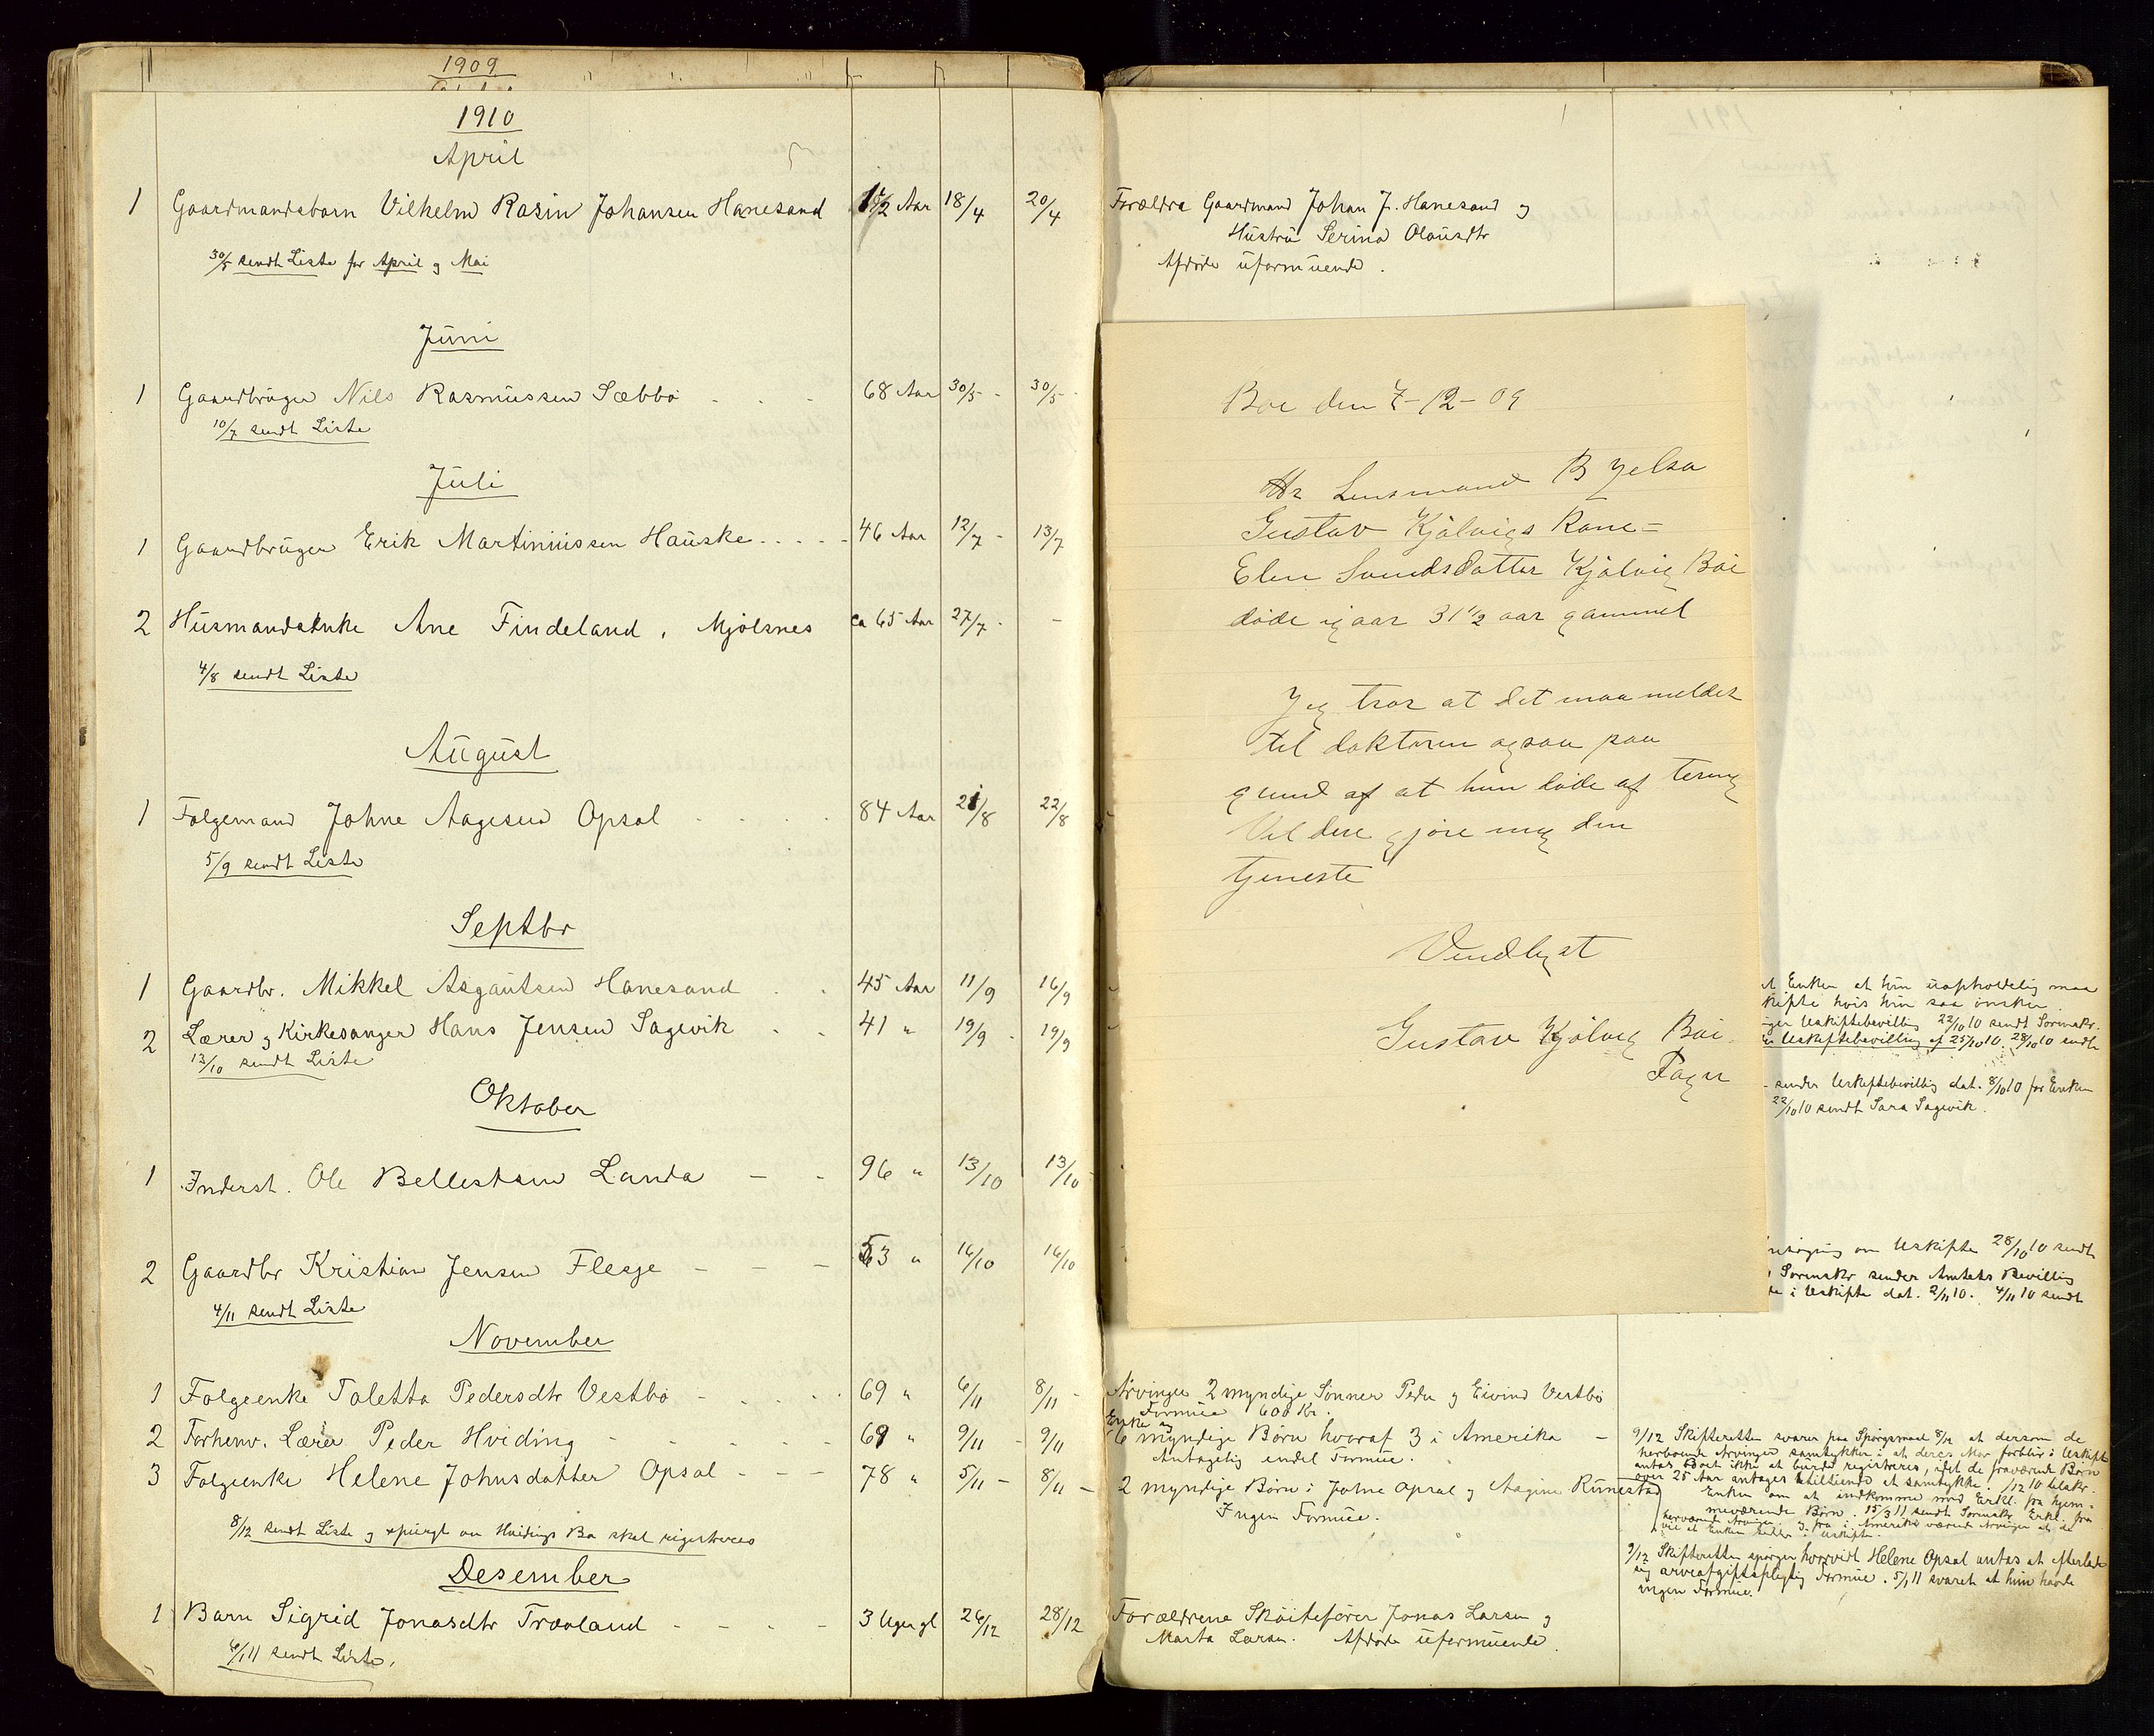 1909
1910
April
1 Gaardmandsbarn Vilhelm Rasin Johansen Hanesand 1½ Aar 18/4 20/4
30/5 sendt Liste for April og Mai
Juni
1 Gaardbruger Nils Rasmussen Sæbbø 68 Aar 30/5 30/5
10/7 sendt Liste
Juli
1 Gaardbruger Erik Martiniussen Hauske 46 Aar 12/7 13/7
2 Husmandsenke Ane Findeland, Mjølsnes ca 65 Aar 27/7 -
4/8 sendt Liste
August
1 Følgemand Johne Aagesen Opsal 84 Aar 21/8 22/8
5/9 sendt Liste
Septbr
1 Gaardbr. Mikkel Asgautsen Hanesand 45 Aar 11/9 16/9
2 Lærer og Kirkesanger Hans Jensen Sagevik 41 " 19/9 19/9
13/10 sendt Liste
Oktober
1 Inderst. Ole Bellestsen Landa 96 " 13/10 13/10
2 Gaardbr Kristian Jensen Flesje 53 " 16/10 16/10
4/11 sendt Liste
November
1 Følgeenke Taletta Pedersdtr Vestbø 69 " 6/11 8/11
2 Forhenv. Lærer Peder Hviding 69 " 9/11 9/11
3 Følgeenke Helene Johnsdatter Opsal 78 " 5/11 8/11
8/12 sendt Liste og spurgt om Hvidings Bo skal registreres
Desember
1 Barn Sigrid Jonasdtr Trovland 3 Uger gl 26/12 28/12
6/1 11 sendt Liste.
Forældre Gaardmand Johan J. Hanesand og
Hustru Serina Olausdtr
Afdøde uformuende.
Boe den 7-12-09
Hr Lensmand B Jelsa
Gustav Kjølvigs Kone=
Elen Svendsdatter Kjølvig Boe
døde igaar 31 1/2 aar gammel
Jeg tror at det maa meldes
til doktoren ogsaa paa
grund af at hun døde af tering
Vil dere gjøre mig den
tjeneste
Vendligst
Gustav Kjølvig Boe
Fogn
Enken at hun uopholdelig maa
skifte hvis hun saa ønsker
Uskiftebevilling 22/10 10 sendt Sorenskr.
Uskiftebevilling af 25/10 10. 28/10 10 sendt
sender Uskiftebevillig dat. 8/10 10 for Enken
22/10 10 sendt Sara Sagevik.
om Uskifte 28/10 10 sendt
Sorenskr sender Amtets Bevillig
i Uskifte dat. 2/11 10. 4/11 10 sendt
Arvinger 2 myndige Sønner Peder og Eivind Vestbø
Formue 600 Kr.
Enke og
6 myndige Børn hvoraf 3 i Amerika
Antagelig endel Formue.
2 myndige Børn: Johne Opsal og Aagine Runestad
Ingen Formue.
9/12 Skifteretten svarer paa Spørgsmaal 8/12 at dersom de
herboende Arvinger samtykker i at deres Mor forblir i Uskifte
antas Boet ikke at burde registreres, idet de fraværende Børn
over 25 Aar antages stiltiende at samtykke. /12 10 tilskr.
Enken om at indkomme med Erkl. fra hjem-
meværende Børn. 15/3 11 sendt Sorenskr Erkl. fra
herværende Arvinger og fra i Amerika værende Arvinger at de
vil at Enken sidder i Uskifte.
9/12 Skifteretten spørger hvorvidt Helene Opsal antas at efterlade
sig arveafgiftspligtig Formue. 5/1 11 svaret at hun havde
ingen Formue.
Forældrene Skøitefører Jonas Larsen og
Marta Larsen. Afdøde uformuende.